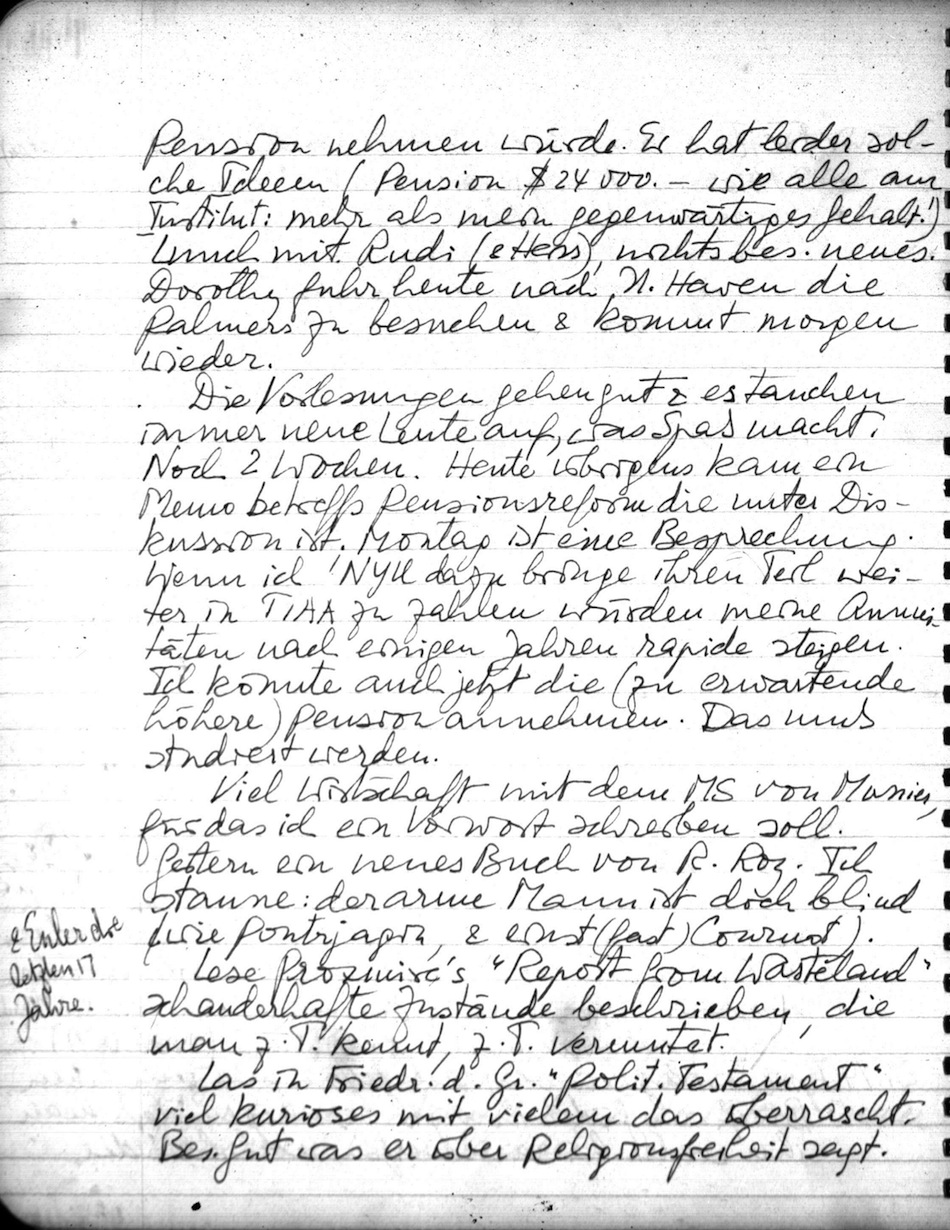 Pension nehmen würde. Er hat leider sol-
che Ideeen (Pension $24 000.— wie alle am
Institut: mehr als mein gegenwärtiges Gehalt!)
Lunch mit Rudi (& Hers), nichts bes. neues.
Dorothy fuhr heute nach N. Haven die
Palmers zu besuchen & kommt morgen
wieder.
Die Vorlesungen gehen gut & es tauchen
immer neue Leute auf, was Spaß macht.
Noch 2 Wochen. Heute übrigens kam ein
Memo betreffs Pensionsreform die unter Dis-
kussion ist. Montag ist eine Besprechung.
Wenn ich NYU dazu bringe ihren Teil wei-
ter in TIAA zu zahlen würden meine Annui-
täten nach einigen Jahren rapide steigen.
Ich könnte auch jetzt die (zu erwartende
höhere) Pension annehmen. Das muß
studiert werden.
Viel Wirtschaft mit dem MS von
für das ich ein Vorwort schreiben soll.
Gestern ein neues Buch von R. Roz. Ich
staune: der arme Mann ist doch blind
(wie Pontrjagin, & einst (fast) Cournot).
& Euler die
letzten 17
Jahre.
Lese Proxmire's "Report from Wasteland"
schauderhafte Zustände beschrieben, die
man z. T. kennt, z. T. vermutet.
Las in Friedr. d. Gr. "Polit. Testament"
viel kurioses mit vielem das überrascht.
Bes. gut was er über Religionsfreiheit sagt.